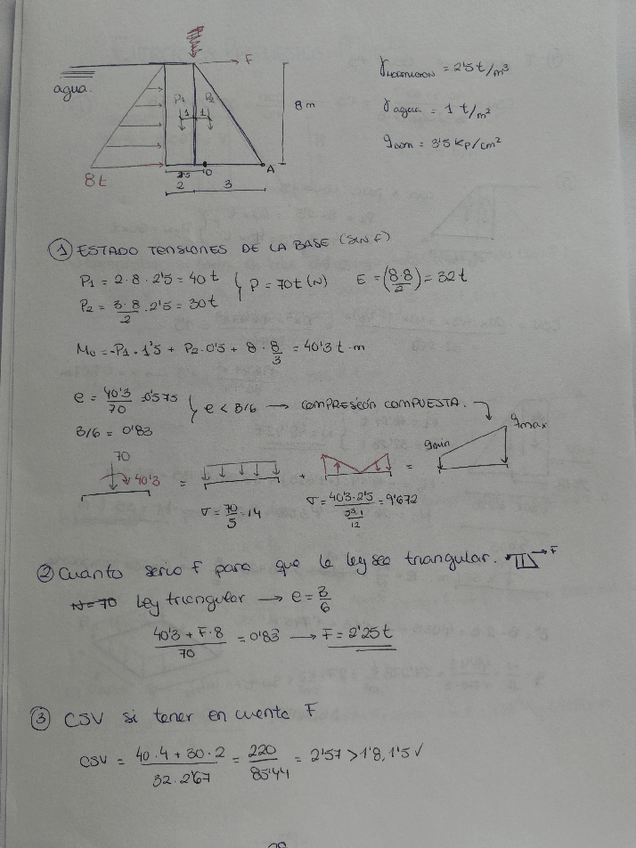 F
agua.
P1 P2
1 1
8 m
8t
2'5 O
A
2 3
γHORMIGON = 2'5 t/m³
γagua = 1 t/m²
qadm = 3'5 kp/cm²
① ESTADO TENSIONES DE LA BASE (SIN F)
P1 = 2 · 8 · 2'5 = 40 t
P2 = 3 · 8 / 2 · 2'5 = 30 t
} P = 70 t (N) E = (8·8/2) = 32 t
Mo = -P1 · 1'5 + P2 · 0'5 + 8 · 8/3 = 40'3 t·m
e = 40'3/70 = 0'575
B/6 = 0'83
} e < B/6 → COMPRESIÓN COMPUESTA.
70
40'3 = + = qmin qmax
σ = 70/5 = 14
σ = 40'3 · 2'5 / (5³·1/12) = 9'672
② Cuanto seria F para que la ley sea triangular. F
N=70 Ley triangular → e = B/6
40'3 + F·8 / 70 = 0'83 → F = 2'25 t
③ CSV si tener en cuenta F
CSV = 40 · 4 + 30 · 2 / 32 · 2'67 = 220 / 85'44 = 2'57 > 1'8, 1'5 ✓